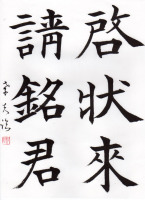 啓狀來
請銘君